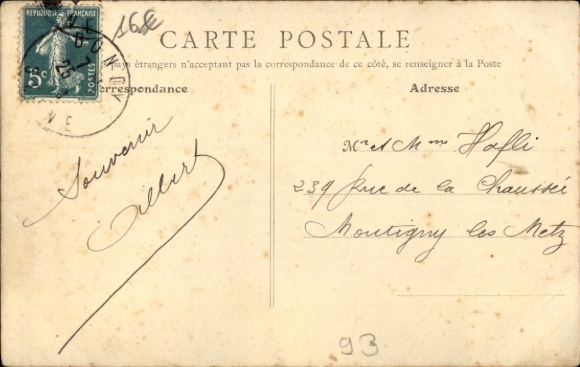 16€
REPUBLIQUE FRANÇAISE
5c
POSTES
CARTE POSTALE
pays étrangers n'acceptant pas la correspondance de ce côté, se renseigner à la Poste
Correspondance
Adresse
Souvenir
Gilbert
Mr et Mme Hofli
239 Rue de la Chaussée
Montigny les Metz
93